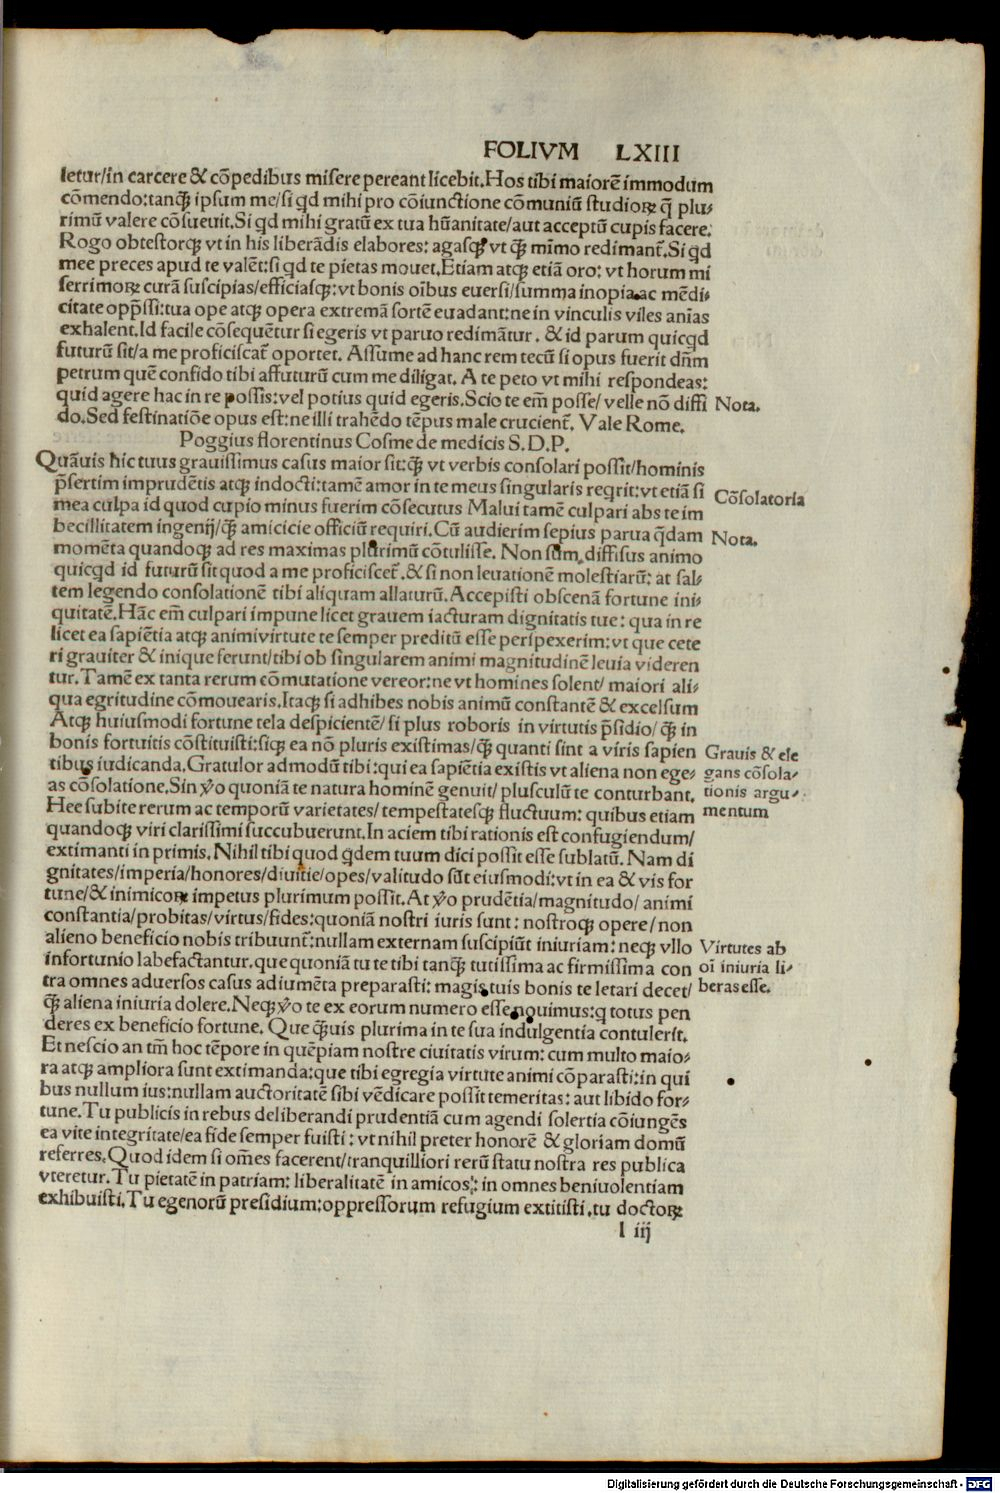 FOLIVM LXIII
letur/in carcere & cōpedibus misere pereant licebit.Hos tibi maiorē immodum
cōmendo:tanqꝫ ipsum me/si qd mihi pro cōiunctione cōmuniū studioꝝ q̄ plu⸗
rimū valere cōsueuit.Si qd mihi gratū ex tua hūanitate/aut acceptū cupis facere.
Rogo obtestorqꝫ vt in his liberādis elabores: agasqꝫ vt qꝫ mīmo redimant̄.Si qd
mee preces apud te valēt:si qd te pietas mouet.Etiam atqꝫ etiā oro: vt horum mi
serrimoꝝ curā suscipias/efficiasqꝫ:vt bonis oībus euersi/summa inopia ac mēdi⸗
citate opp̄ssi:tua ope atqꝫ opera extremā sortē euadant:ne in vinculis viles anīas
exhalent.Id facile cōsequētur si egeris vt paruo redimātur. & id parum quicqd
futurū sit/a me proficiscat̄ oportet. Assume ad hanc rem tecū si opus fuerit dn̄m
petrum quē confido tibi affuturū cum me diligat. A te peto vt mihi respondeas:
quid agere hac in re possis:vel potius quid egeris.Scio te em̄ posse/ velle nō diffi
Nota.
do.Sed festinatiōe opus est:ne illi trahēdo tēpus male crucient̄. Vale Rome.
Poggius florentinus Cosme de medicis S.D.P.
Quāuis hic tuus grauissimus casus maior sit:qꝫ vt verbis consolari possit/hominis
p̄sertim imprudētis atqꝫ indocti:tamē amor in te meus singularis reqrit:vt etiā si
Cōsolatoria
mea culpa id quod cupio minus fuerim cōsecutus Malui tamē culpari abs te im
becillitatem ingenij/qꝫ amicicie officiū requiri.Cū audierim sepius parua q̄dam
Nota.
momēta quandoqꝫ ad res maximas plurimū cōtulisse. Non sum diffisus animo
quicqd id futurū sit quod a me proficiscet̄.& si non leuationē molestiarū: at sal⸗
tem legendo consolationē tibi aliquam allaturū.Accepisti obscenā fortune ini⸗
quitatē.Hāc em̄ culpari impune licet grauem iacturam dignitatis tue: qua in re
licet ea sapiētia atqꝫ animi virtute te semper preditū esse perspexerim:vt que cete
ri grauiter & inique ferunt/tibi ob singularem animi magnitudinē leuia videren
tur.Tamē ex tanta rerum cōmutatione vereor:ne vt homines solent/ maiori ali⸗
qua egritudine cōmouearis.Itaqꝫ si adhibes nobis animū constantē & excelsum
Atqꝫ huiusmodi fortune tela despicientē/si plus roboris in virtutis p̄sidio/qꝫ in
bonis fortuitis cōstituisti:siqꝫ ea nō pluris existimas/qꝫ quanti sint a viris sapien
Grauis & ele
tibus iudicanda.Gratulor admodū tibi:qui ea sapiētia existis vt aliena non ege⸗
gans cōsola⸗
as cōsolatione.Sin v̊o quoniā te natura hominē genuit/ plusculū te conturbant.
tionis argu⸗
Hee subite rerum ac temporū varietates/ tempestatesqꝫ fluctuum: quibus etiam
mentum
quandoqꝫ viri clarissimi succubuerunt.In aciem tibi rationis est confugiendum/
extimanti in primis.Nihil tibi quod qdem tuum dici possit esse sublatū. Nam di
gnitates/imperia/honores/diuitie/opes/valitudo sūt eiusmodi:vt in ea & vis for
tune/& inimicoꝝ impetus plurimum possit.At v̊o prudētia/magnitudo/ animi
constantia/probitas/virtus/fides:quoniā nostri iuris sunt: nostroqꝫ opere/non
alieno beneficio nobis tribuunt̄:nullam externam suscipiūt iniuriam: neqꝫ vllo
Virtutes ab
infortunio labefactantur.que quoniā tu te tibi tanqꝫ tutissima ac firmissima con
oī iniuria li⸗
tra omnes aduersos casus adiumēta preparasti: magis tuis bonis te letari decet/
beras esse.
qꝫ aliena iniuria dolere.Neqꝫ v̊o te ex eorum numero esse nouimus:q totus pen
deres ex beneficio fortune. Que qꝫuis plurima in te sua indulgentia contulerit.
Et nescio an tm̄ hoc tēpore in quēpiam nostre ciuitatis virum: cum multo maio⸗
ra atqꝫ ampliora sunt extimanda:que tibi egregia virtute animi cōparasti:in qui
bus nullum ius:nullam auctoritatē sibi vēdicare possit temeritas: aut libido for⸗
tune.Tu publicis in rebus deliberandi prudentiā cum agendi solertia cōiungēs
ea vite integritate/ea fide semper fuisti: vt nihil preter honorē & gloriam domū
referres.Quod idem si om̄es facerent/tranquilliori rerū statu nostra res publica
vteretur.Tu pietatē in patriam: liberalitatē in amicos: in omnes beniuolentiam
exhibuisti.Tu egenorū presidium:oppressorum refugium extitisti.tu doctoꝝ
l iij
Digitalisierung gefördert durch die Deutsche Forschungsgemeinschaft - DFG